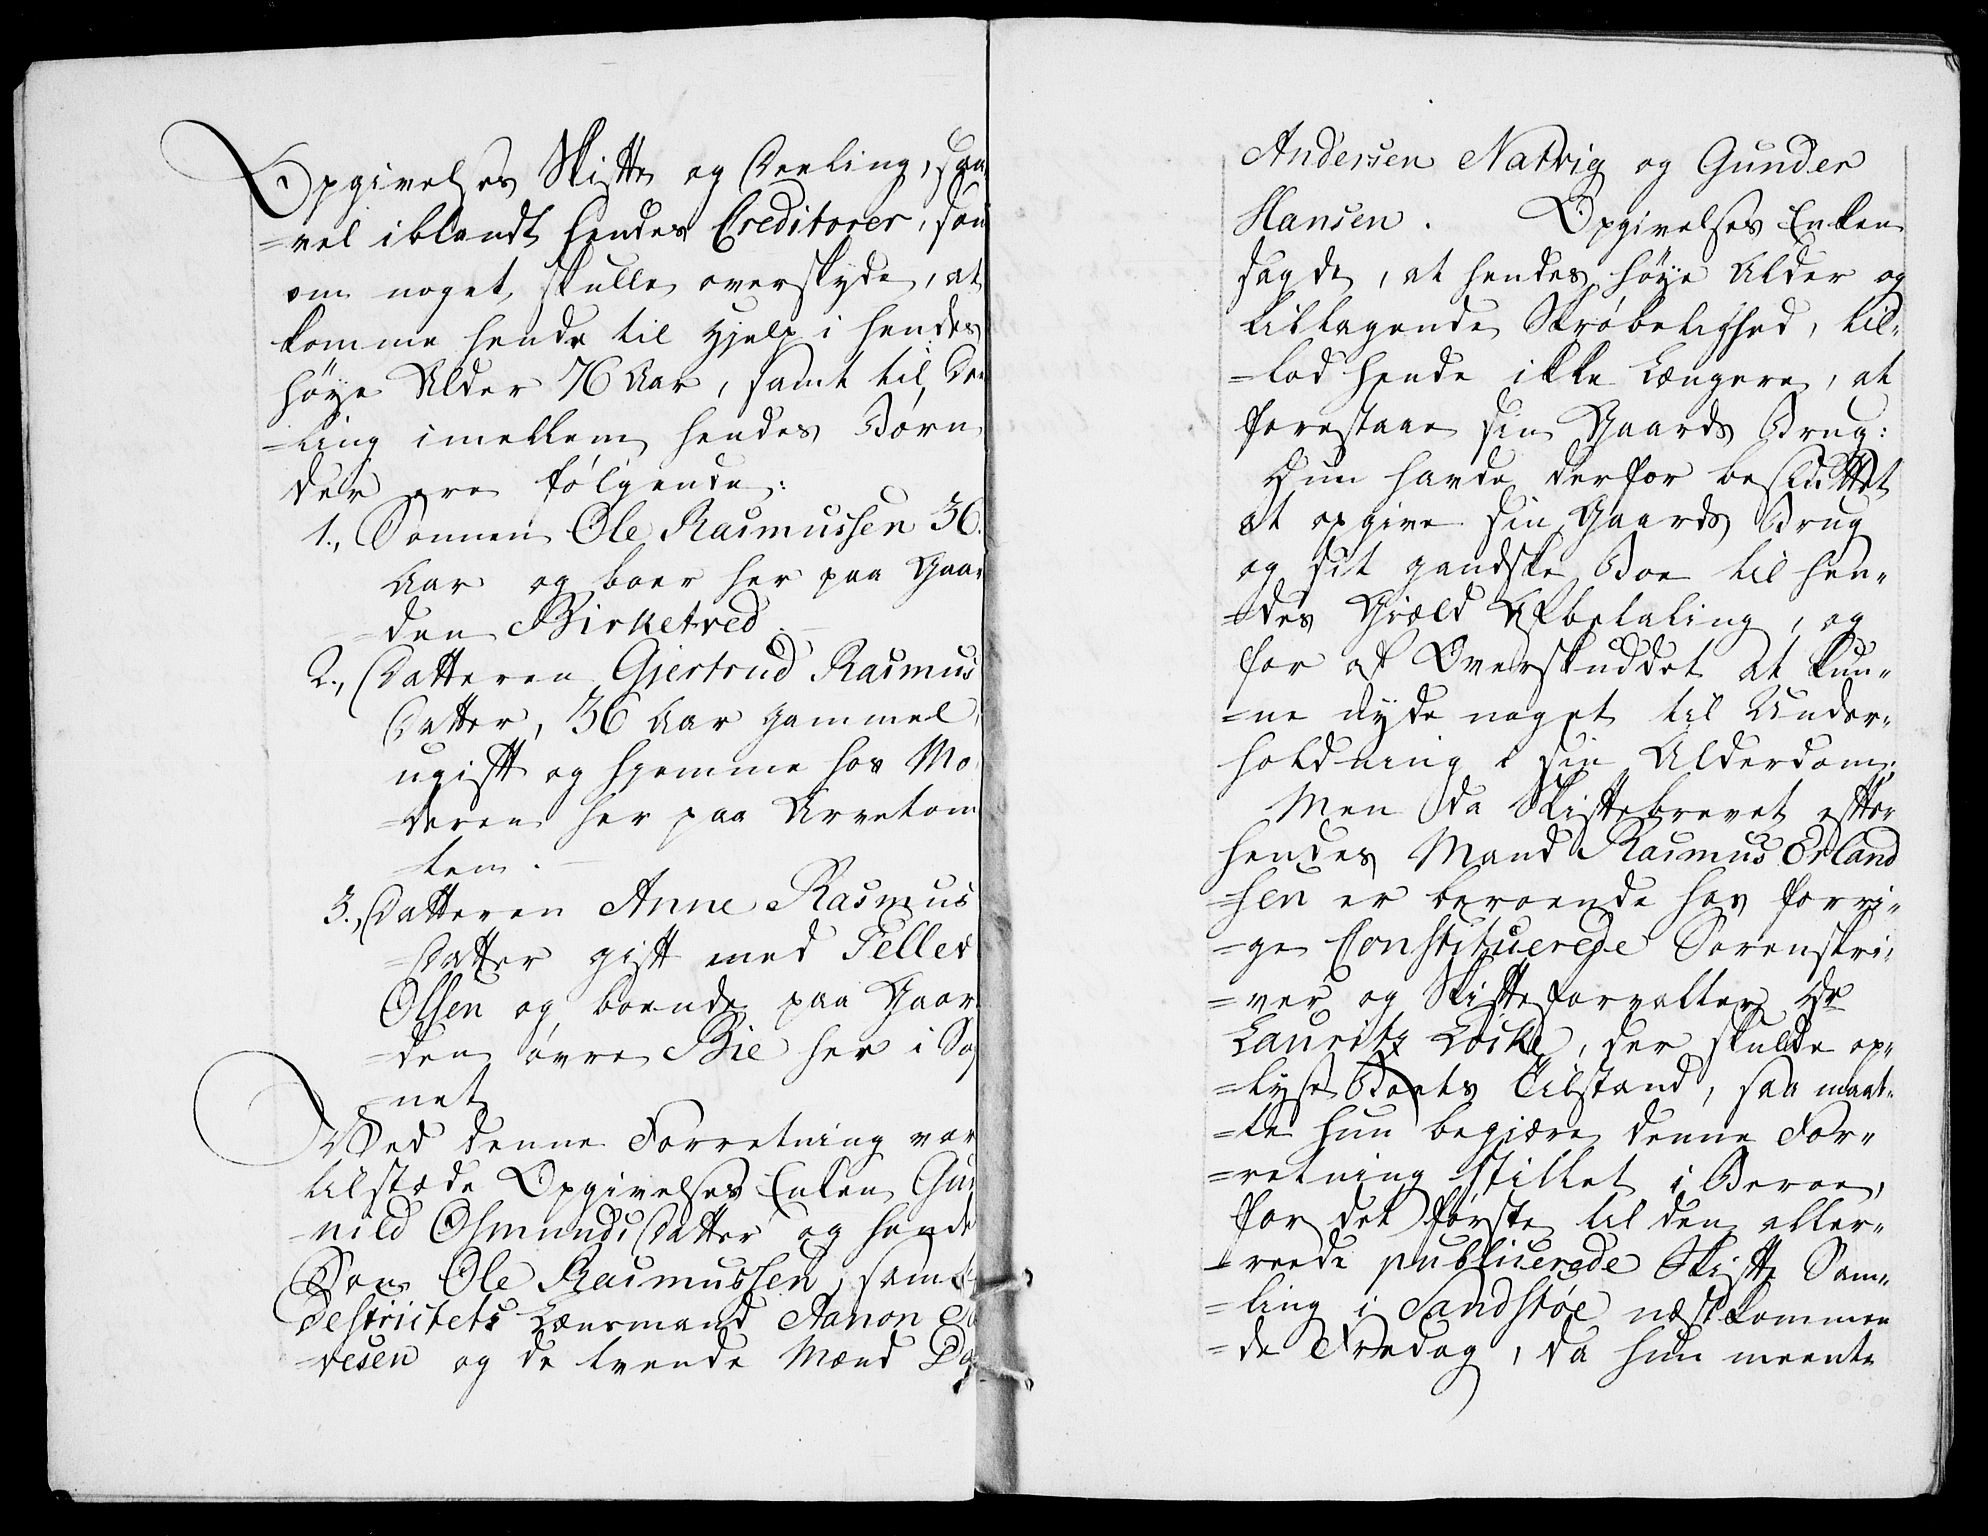 Opgivelses Skifte og Deeling, saa
=vel iblandt hendes Creditorer, som
om noget skulle overskyde, at
komme hende til Hjelp i hendes
høye Alder 76 Aar, samt til Dee
=ling imellem hendes Børn
der ere følgende:
1., Sønnen Ole Rasmussen 36.
Aar og boer her paa Gaar
=den Birketved.
2., Datteren Giertrud Rasmus
Datter, 36 Aar gammel,
ugift og hjemme hos Mo
=deren her paa Arvetom
=ten.
3., Datteren Anne Rasmus
=Datter gift med Tellev
Olsen og boende paa Gaar
=den øvre Bie her i Sog
=net
Ved denne Forretning var
tilstæde Opgivelses Enken Gun
=nild Osmunds Datter og hendes
Søn Ole Rasmussen, samt
Destrictets Lænsmand Aanon
=vesen og de tvende Mænd
Andersen Natvig og Gunder
Hansen. Opgivelses Enken
sagde, at hendes høye Alder og
tiltagende Skrøbelighed, til=
=lod hende ikke Længere, at
forestaae sin Gaards Brug:
Hun havde derfor besluttet
at opgive sin Gaards Brug
og sit gandske Boe til hen=
=des Giæld Afbetaling, og
for af Overskuddet at kun=
=ne nyde noget til Under=
holdning i sin Alderdom;
Men da Skiftebrevet efter
hendes Mand Rasmus Erland
=sen er beroende hos forri=
=ge Constituerede Sorenskri=
=ver og Skifteforvalter Hr
Lauritz Locke, der skulde op=
=lyse Boets Tilstand, saa maat=
=te hun begiære denne For=
=retning stillet i Beroe,
for det første til den aller=
=reede publicerede Skifte Sam=
=ling i Sandstøe næstkommen
=de Fredag, da hun meente